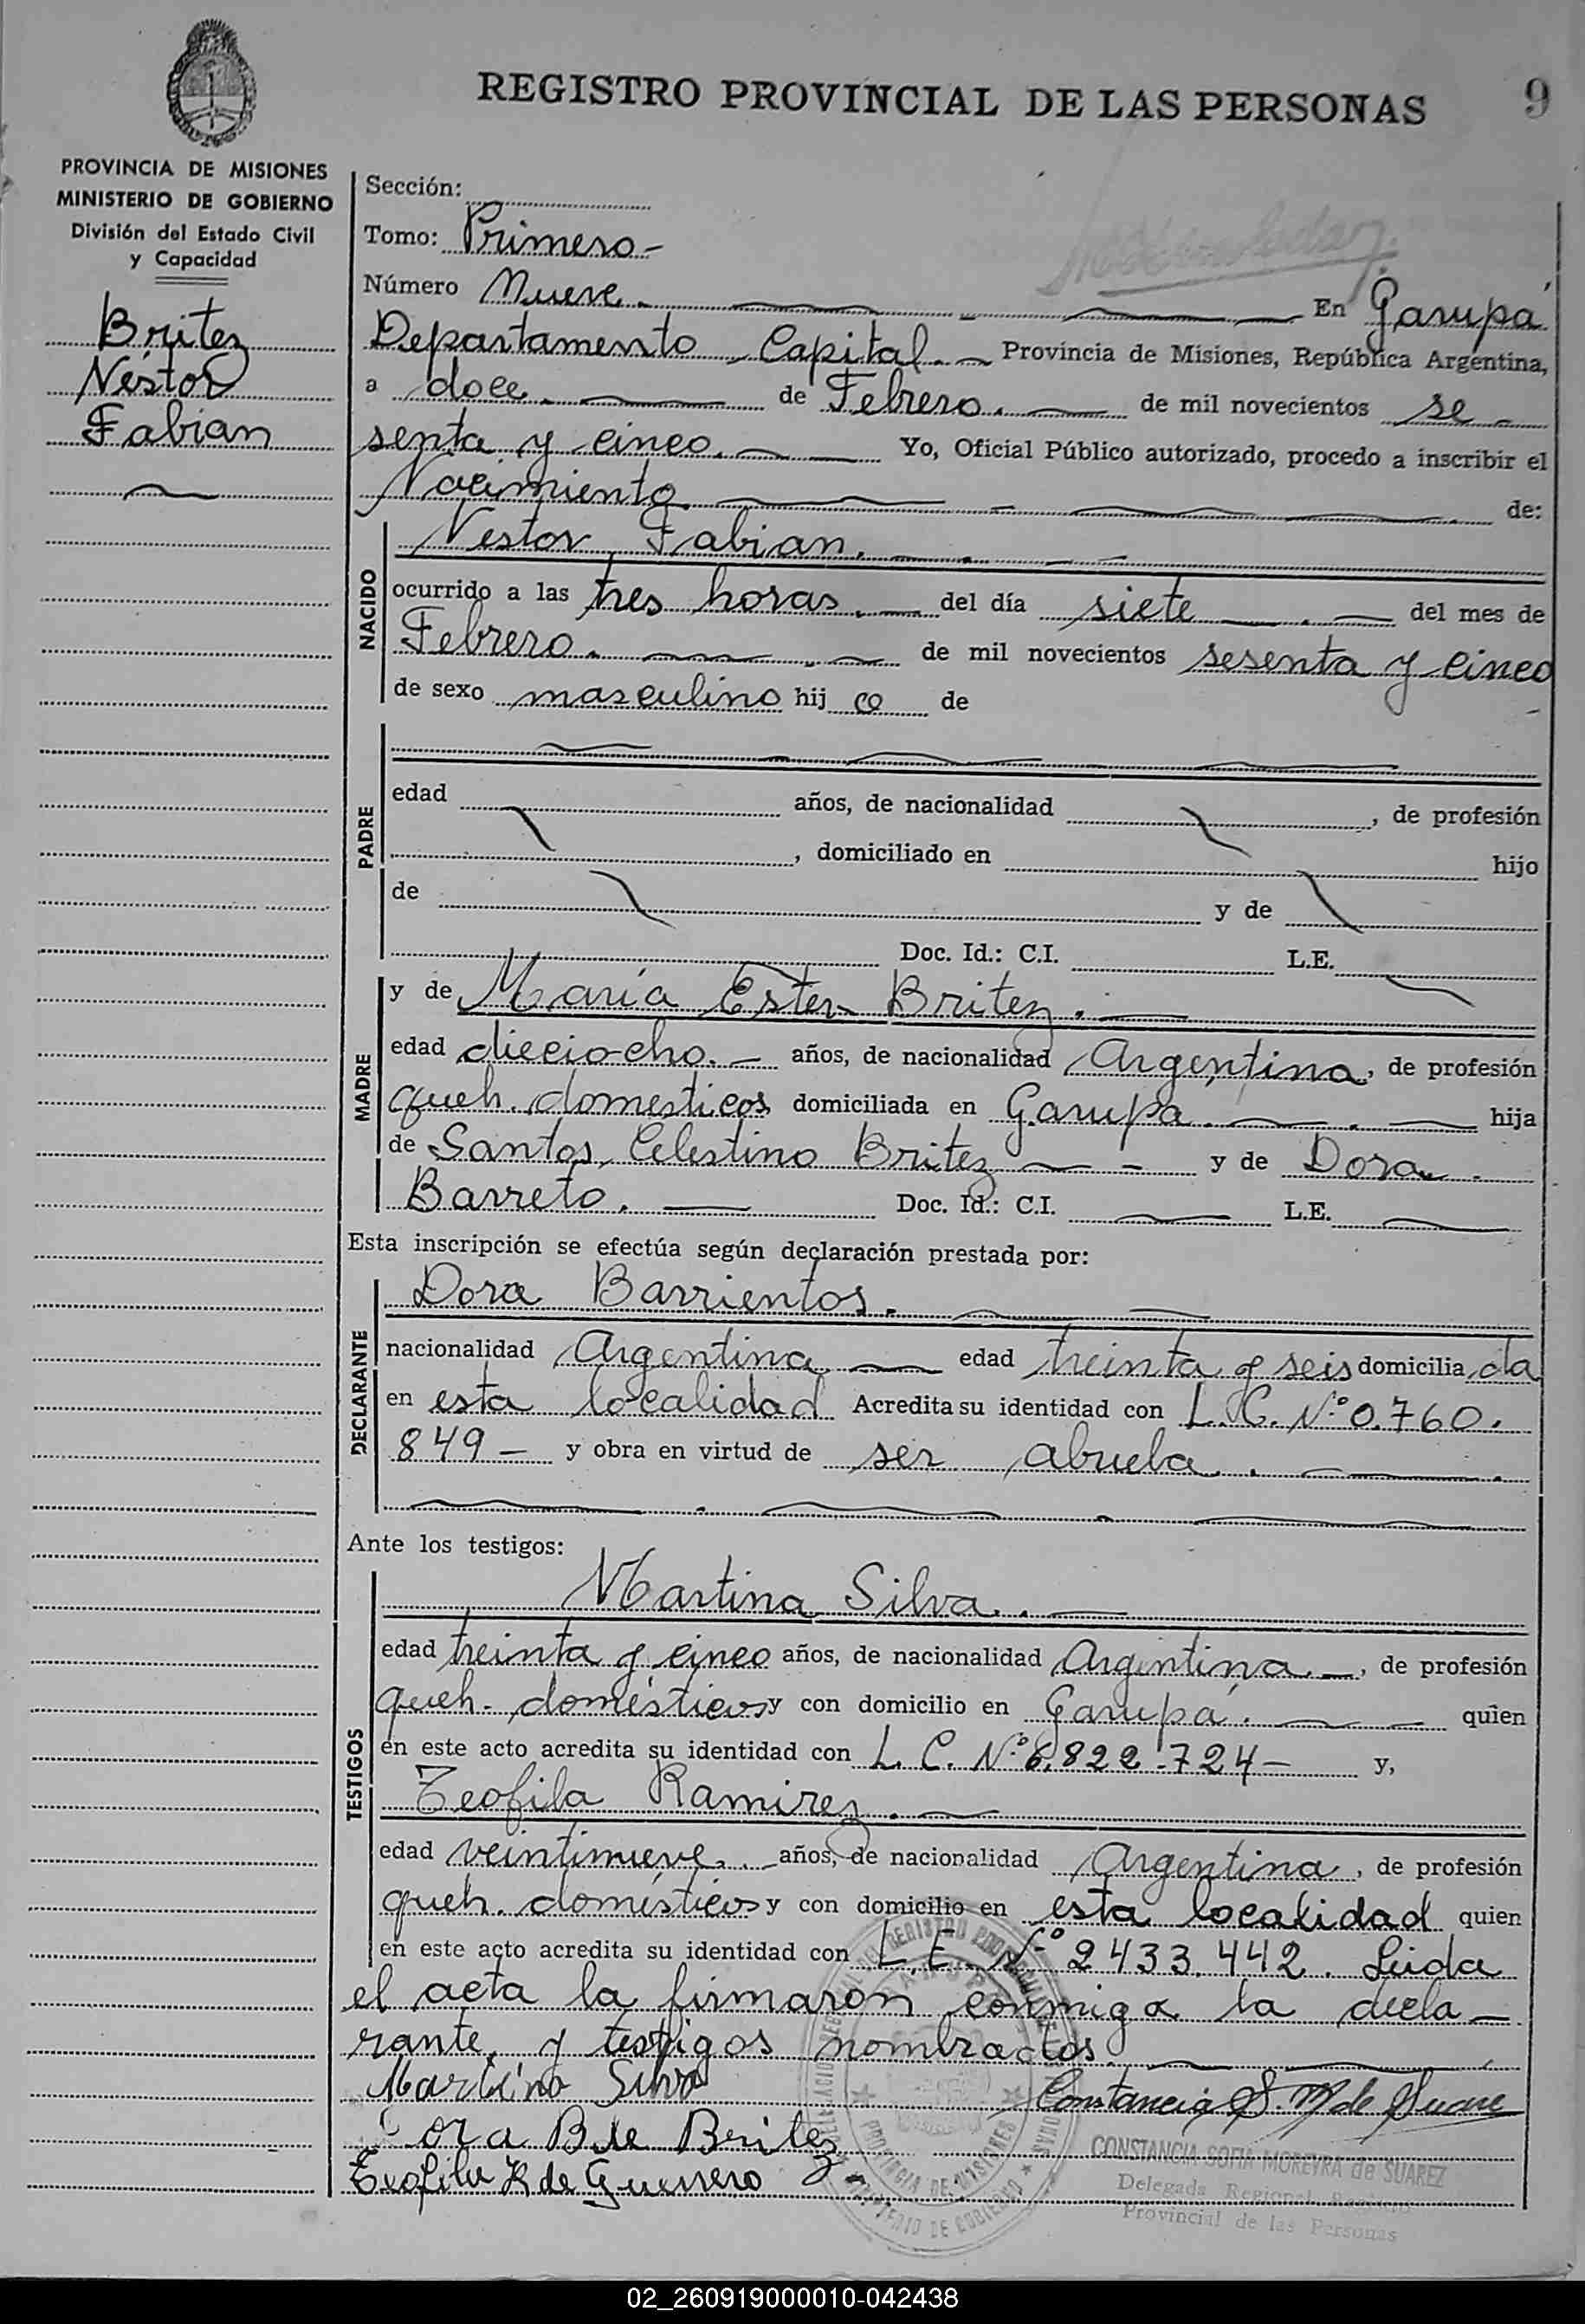 REGISTRO PROVINCIAL DE LAS PERSONAS 9
PROVINCIA DE MISIONES
MINISTERIO DE GOBIERNO
División del Estado Civil
y Capacidad
Britez
Néstor
Fabian
Sección:
Tomo: Primero -
Número Nueve. En Garupá
Departamento Capital. - Provincia de Misiones, República Argentina,
a doce. de Febrero. de mil novecientos se -
senta y cinco. Yo, Oficial Público autorizado, procedo a inscribir el
Nacimiento de:
NACIDO
Nestor Fabian.
ocurrido a las tres horas. del día siete del mes de
Febrero. de mil novecientos sesenta y cinco
de sexo masculino hij o de
PADRE
edad años, de nacionalidad , de profesión
, domiciliado en hijo
de y de
Doc. Id.: C.I. L.E.
MADRE
y de María Ester Britez.
edad dieciocho. - años, de nacionalidad Argentina, de profesión
queh. domesticos domiciliada en Garupá. hija
de Santos Celestino Britez y de Dora
Barreto. Doc. Id.: C.I. L.E.
Esta inscripción se efectúa según declaración prestada por:
DECLARANTE
Dora Barrientos.
nacionalidad Argentina edad treinta y seis domicilia da
en esta localidad Acredita su identidad con L.C. Nº 0.760.
849 - y obra en virtud de ser abuela.
Ante los testigos:
TESTIGOS
Martina Silva.
edad treinta y cinco años, de nacionalidad Argentina. -, de profesión
queh. domésticos y con domicilio en Garupá. quien
en este acto acredita su identidad con L. C. Nº 6.822.724 - y,
Teofila Ramirez.
edad veintinueve. años, de nacionalidad Argentina, de profesión
queh. domésticos y con domicilio en esta localidad quien
en este acto acredita su identidad con L. E. Nº 2433.442. Leida
el acta la firmaron conmigo la decla -
rante y testigos nombrados.
Martina Silva
Constancia S. M de Suarez
Dora B de Britez
CONSTANCIA SOFIA MOREYRA de SUAREZ
Teofila R de Guerrero
Delegada Regional Registro
Provincial de las Personas
PROVINCIA DE MISIONES
MINISTERIO DE GOBIERNO
02_260919000010-042438